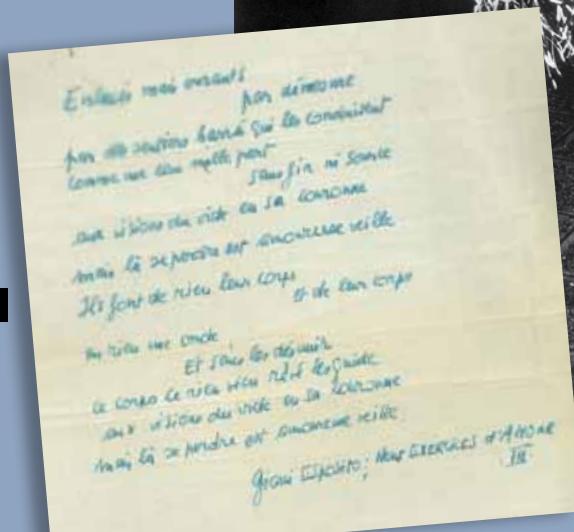 mais errants
par
par des barré qui les conduisent
comme une nulle part
sans fin ni
aux visions du vide en sa couronne
mais là se perdre est amoureuse veille
Ils font de rien leur corps
et de leur corps
un rien une onde
Et sans les
ce corps ce rien les guide
aux visions du vide en sa couronne
mais là se perdre est amoureuse veille
Giani Esposito; Neuf Exercices d'Amour
III